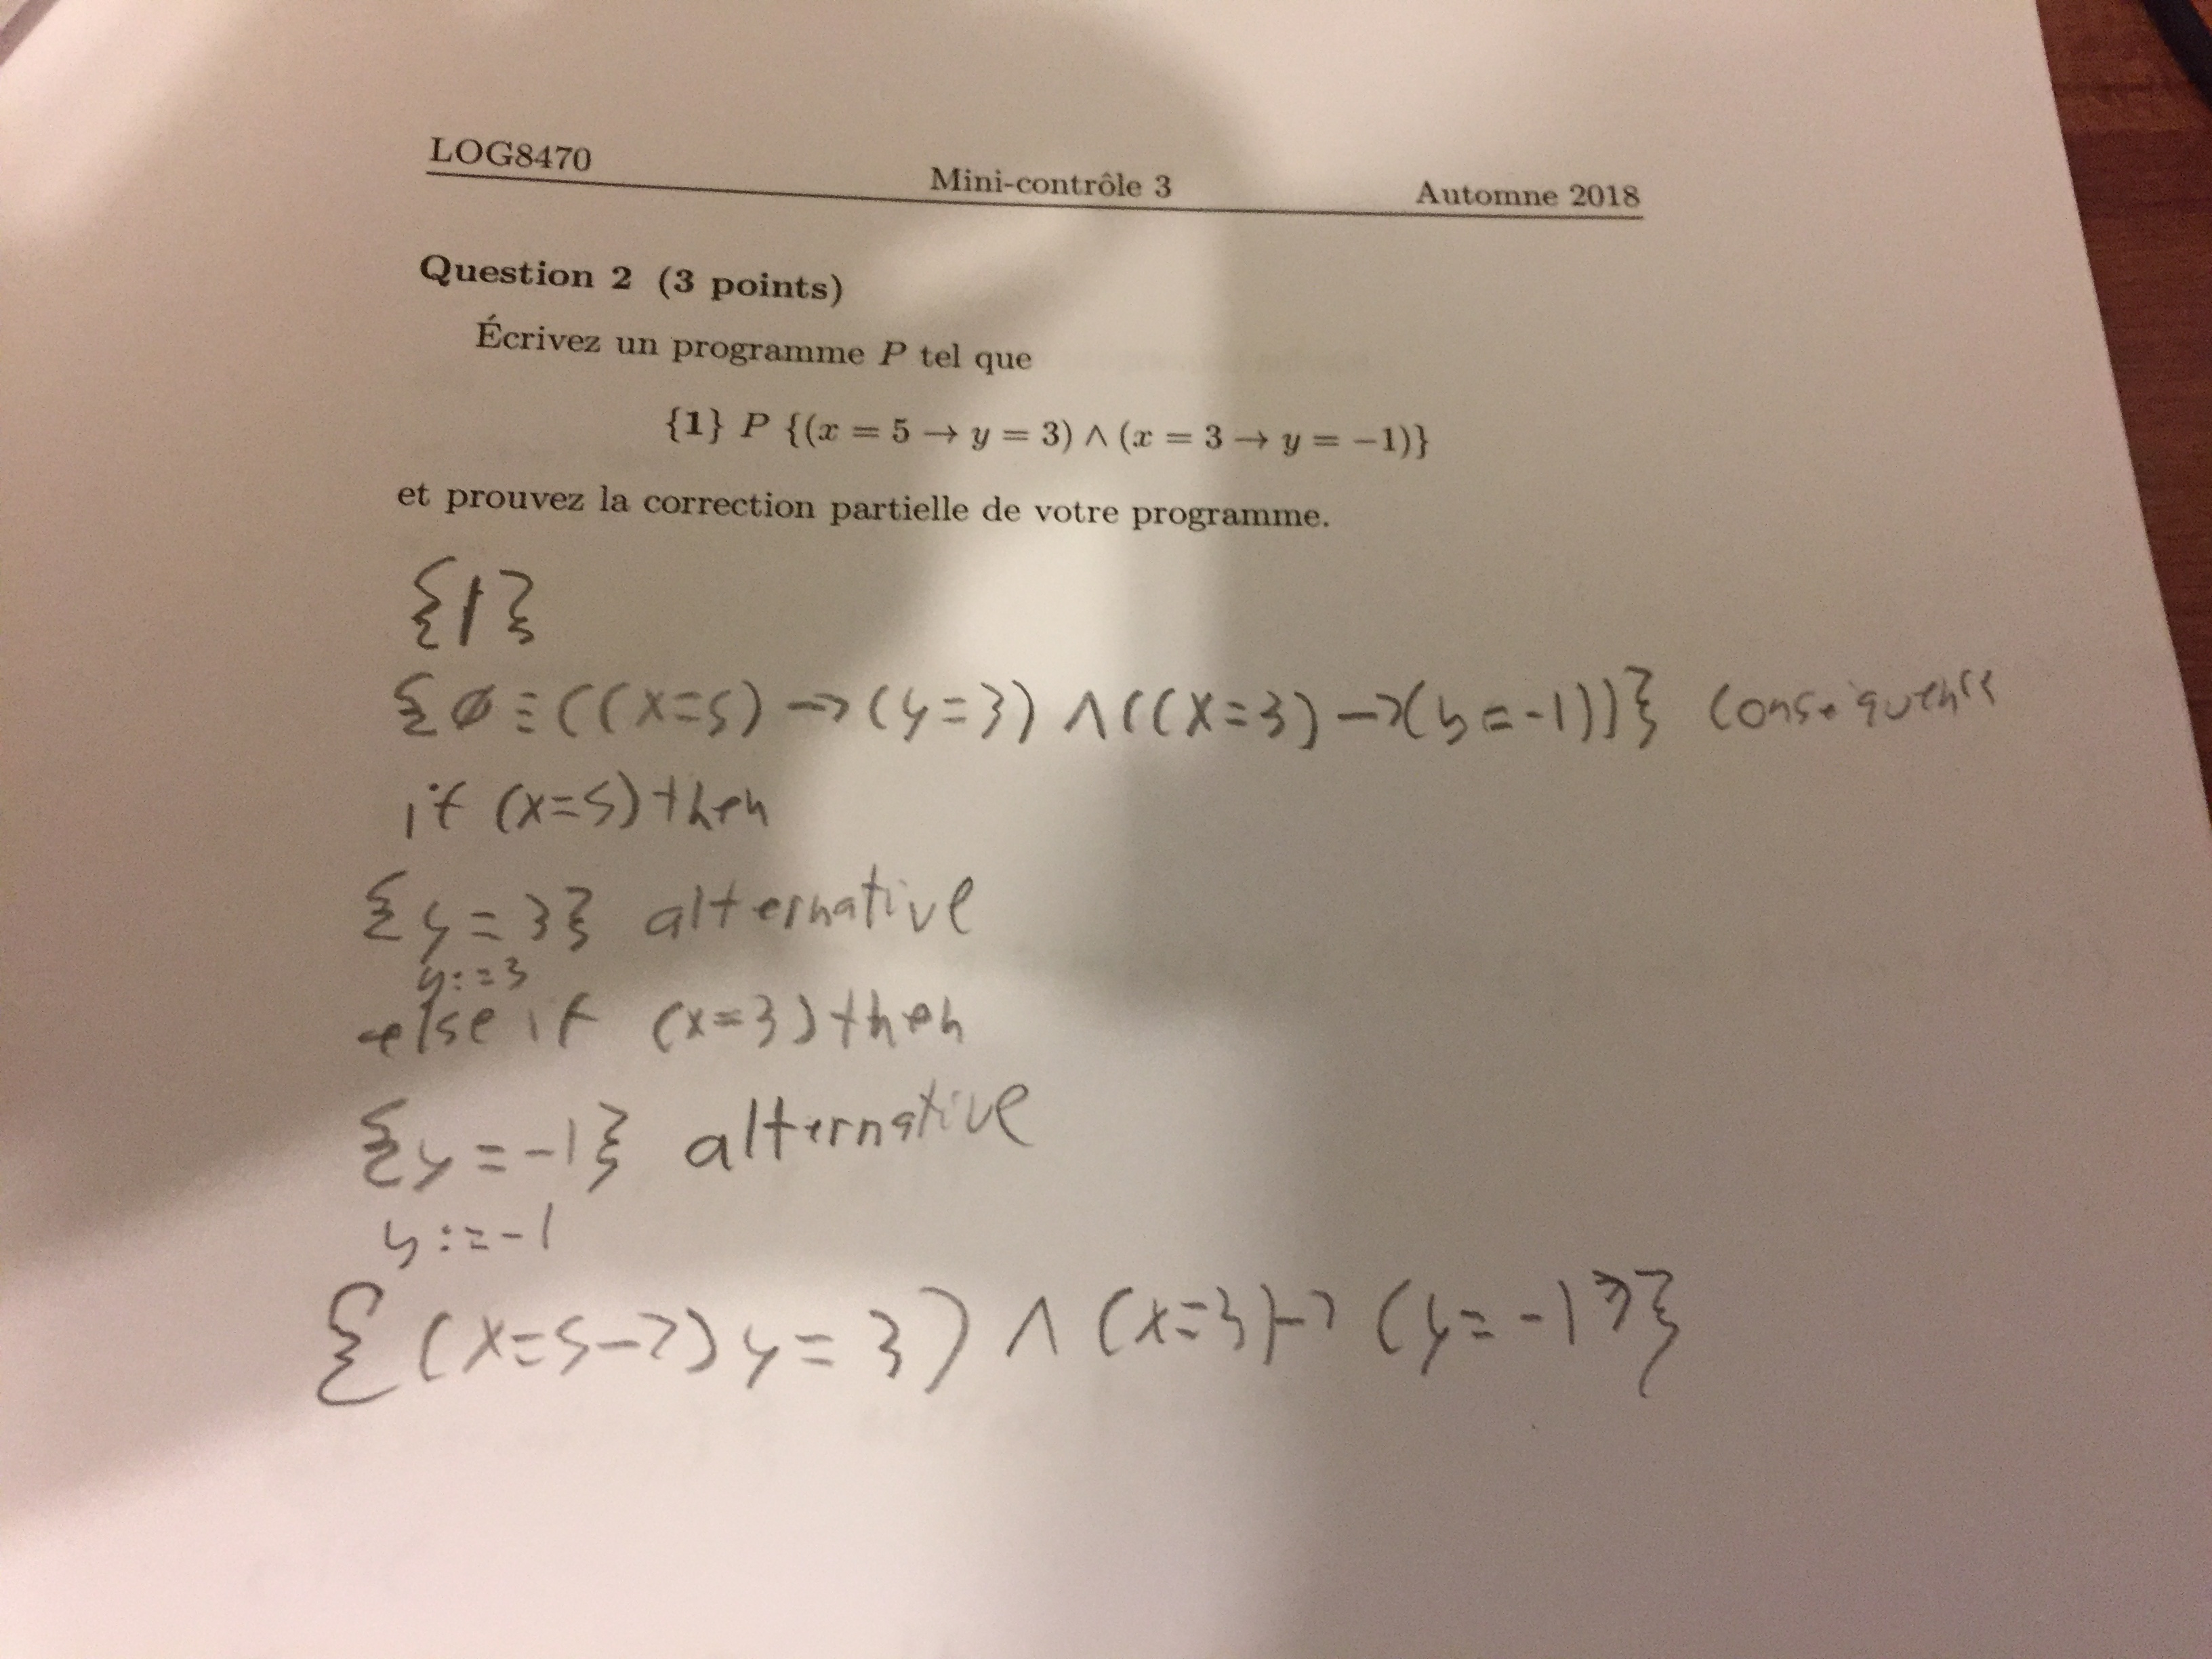 LOG8470 Mini-contrôle 3 Automne 2018
Question 2 (3 points)
Écrivez un programme P tel que
{1} P {(x = 5 → y = 3) ∧ (x = 3 → y = −1)}
et prouvez la correction partielle de votre programme.
{1}
{ø ≡ ((x=5) → (y=3) ∧ ((x=3) → (y=-1))} conséquence
if (x=5) then
{y=3} alternative
y:=3
else if (x=3) then
{y=-1} alternative
y:=-1
{(x=5→) y=3) ∧ (x=3) → (y=-1)}